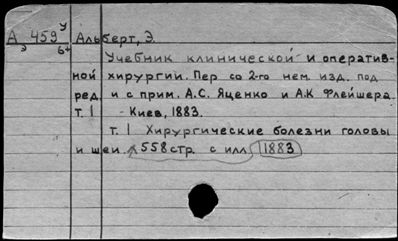 А 459 у Альберт, Э.
э 6+
Учебник клинической и оператив-
ной хирургии. Пер со 2-го нем. изд. под
ред. и с прим. А.С. Яценко и А.К Флейшера.
т. 1 - Киев, 1883.
т. 1 Хирургические болезни головы
и шеи. 558 стр. с илл 1883